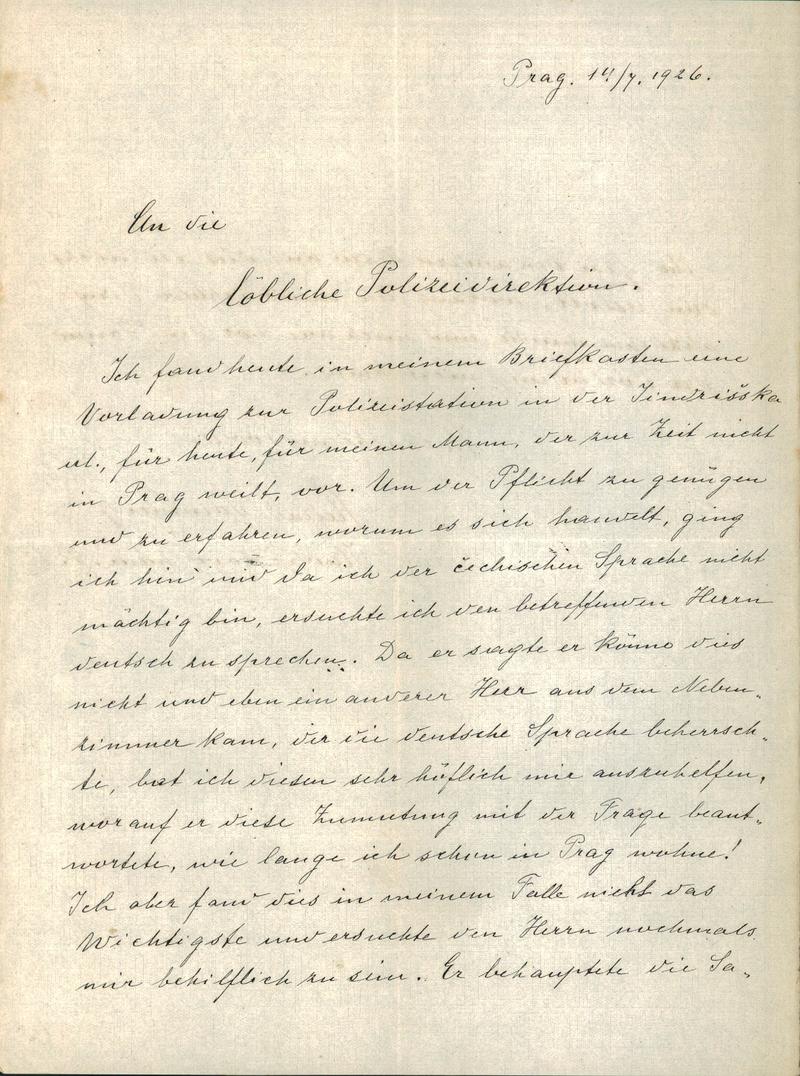 Prag. 14/7. 1926.
An die
löbliche Polizeidirektion.
Ich fand heute in meinem Briefkasten eine
Vorladung zur Polizeistation in der Jindrišska
ul., für heute, für meinen Mann, der zur Zeit nicht
in Prag weilt, vor. Um der Pflicht zu genügen
und zu erfahren, worum es sich handelt, ging
ich hin und da ich der čechischen Sprache nicht
mächtig bin, ersuchte ich den betreffenden Herrn
deutsch zu sprechen. Da er sagte er könne dies
nicht und eben ein anderer Herr aus dem Neben-
zimmer kam, der die deutsche Sprache beherrsch-
te, bat ich diesen sehr höflich mir auszuhelfen,
worauf er diese Zumutung mit der Frage beant-
wortete, wie lange ich schon in Prag wohne!
Ich aber fand dies in meinem Falle nicht das
Wichtigste und ersuchte den Herrn nochmals
mir behilflich zu sein. Er behauptete die Sa-